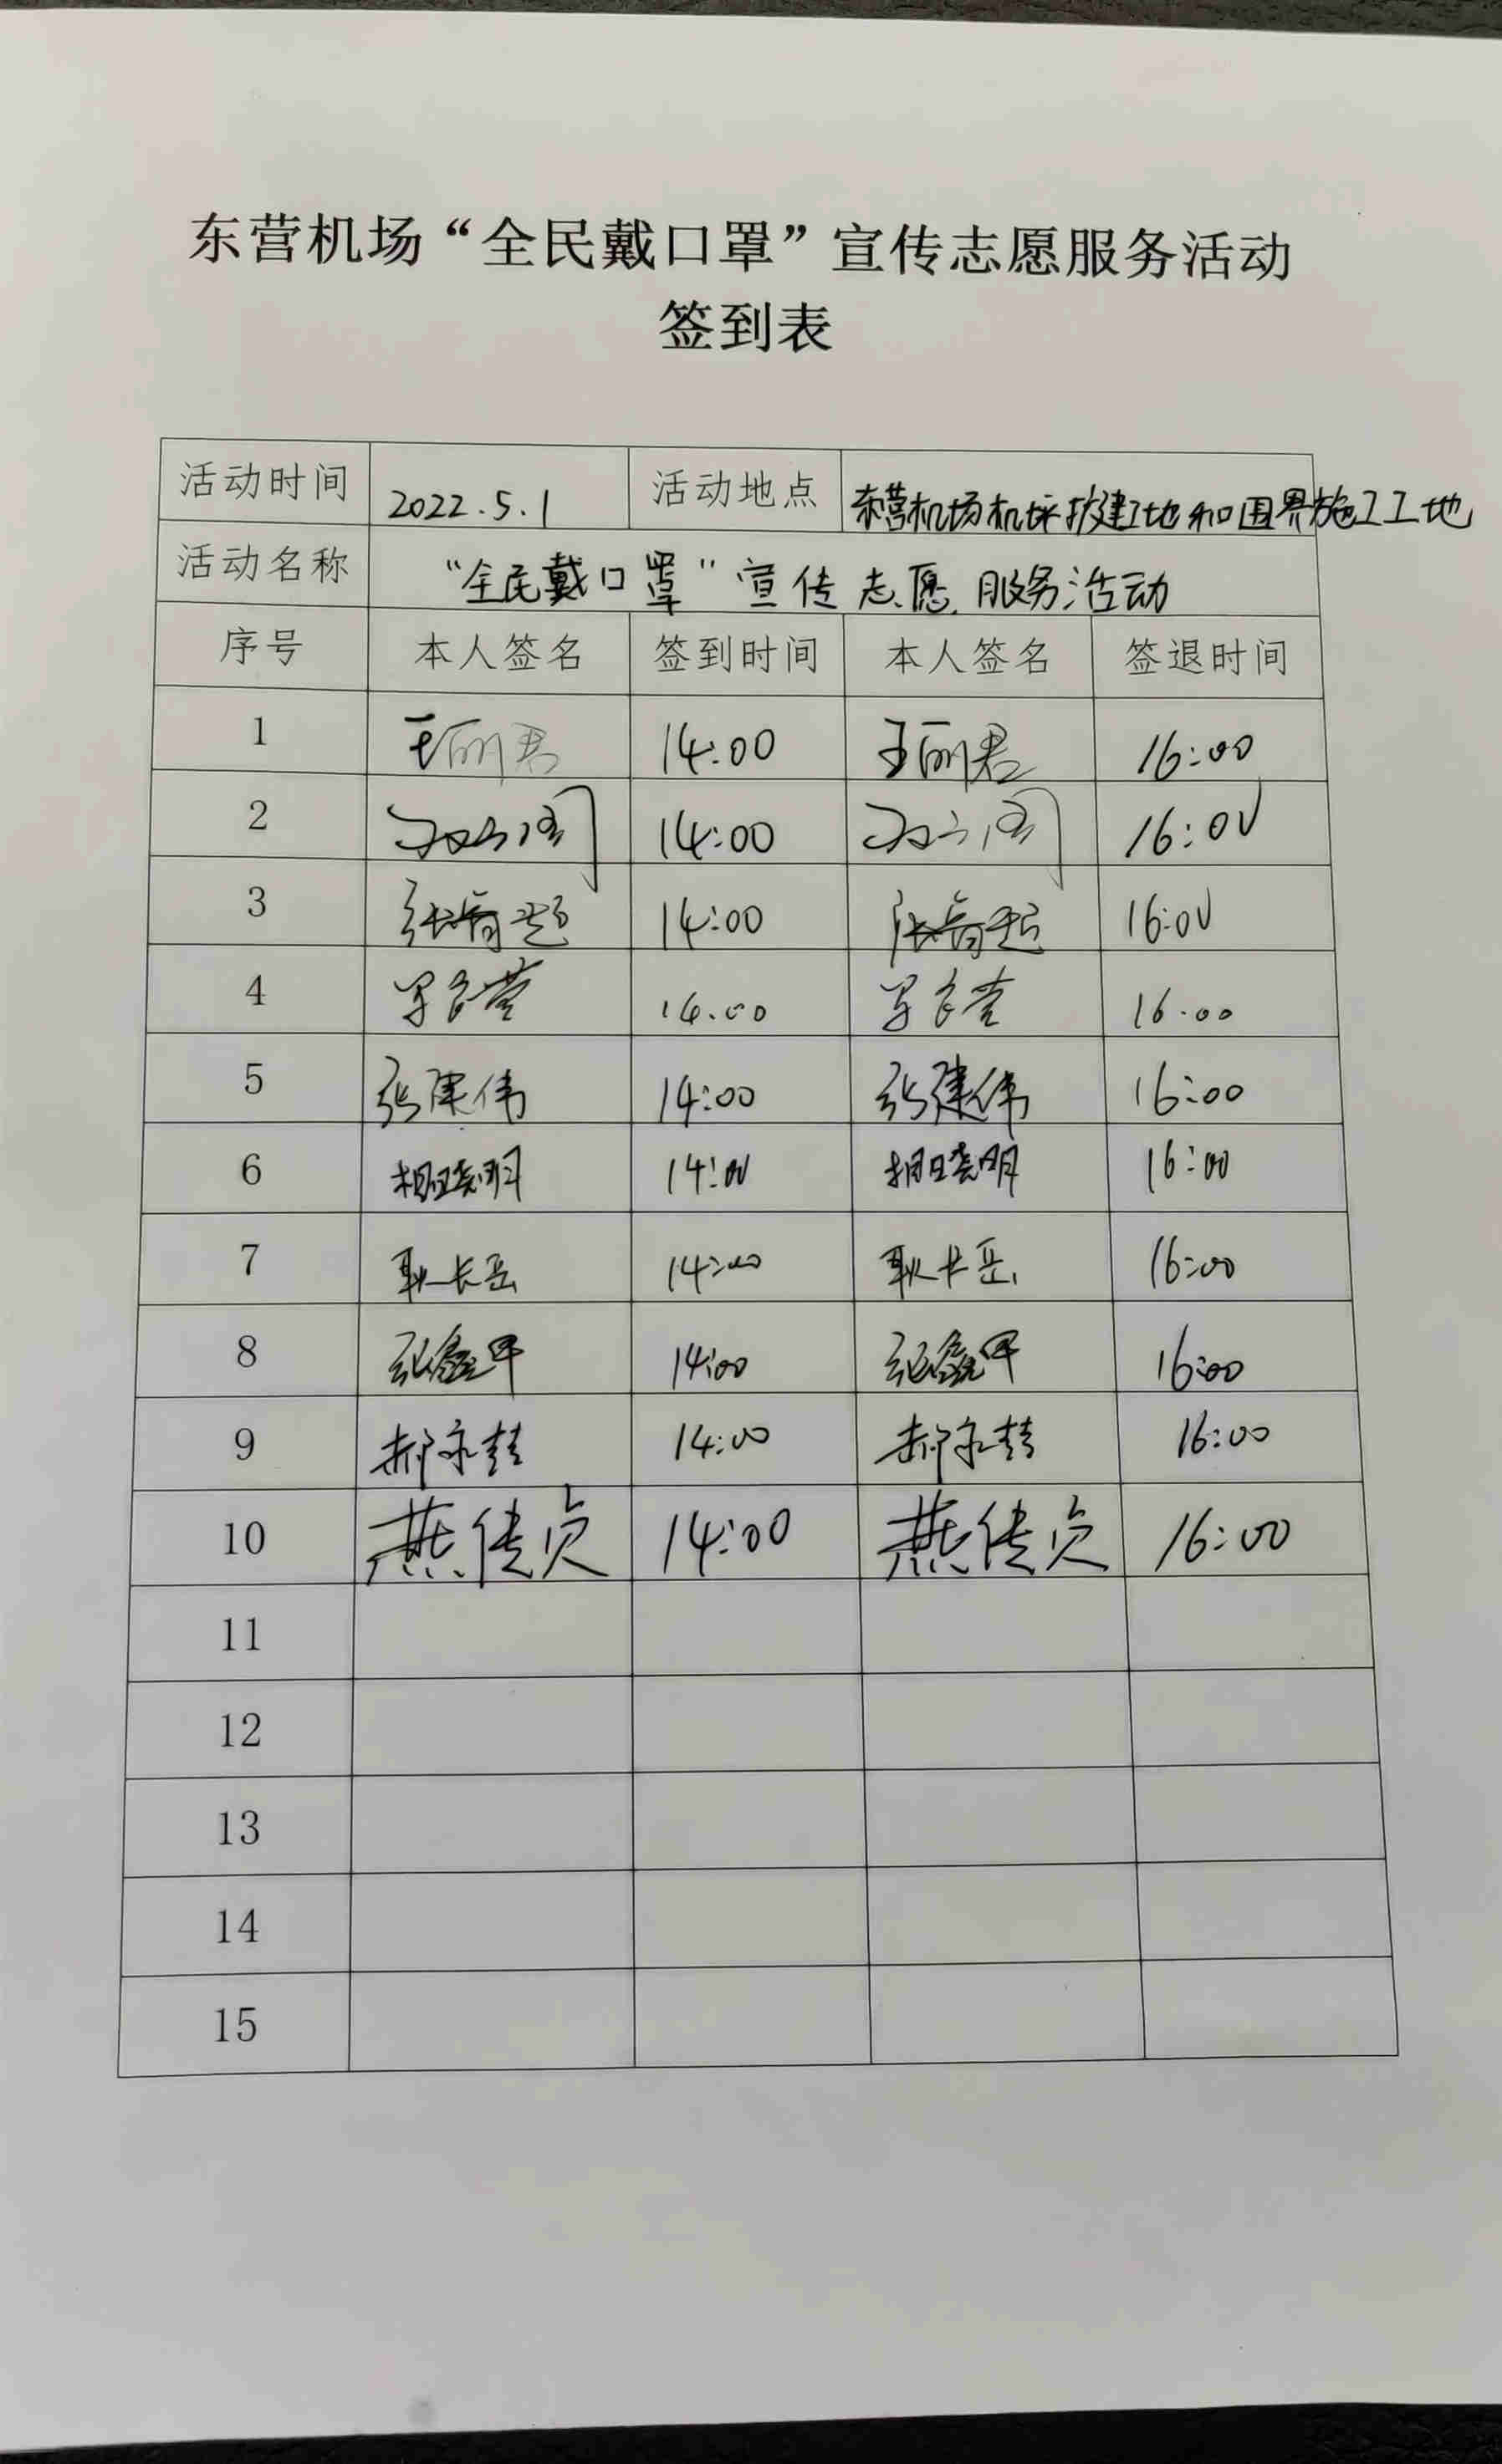 东营机场“全民戴口罩”宣传志愿服务活动
签到表
活动时间 2022.5.1 活动地点 东营机场机坪扩建工地和围界施工工地
活动名称 “全民戴口罩”宣传志愿服务活动
序号 本人签名 签到时间 本人签名 签退时间
1 王丽君 14:00 王丽君 16:00
2 14:00 16:00
3 14:00 16:00
4 14.00 16.00
5 张建伟 14:00 张建伟 16:00
6 相晓明 14:00 相晓明 16:00
7 耿长岳 14:00 耿长岳 16:00
8 14:00 16:00
9 14:00 16:00
10 燕传贞 14:00 燕传贞 16:00
11
12
13
14
15